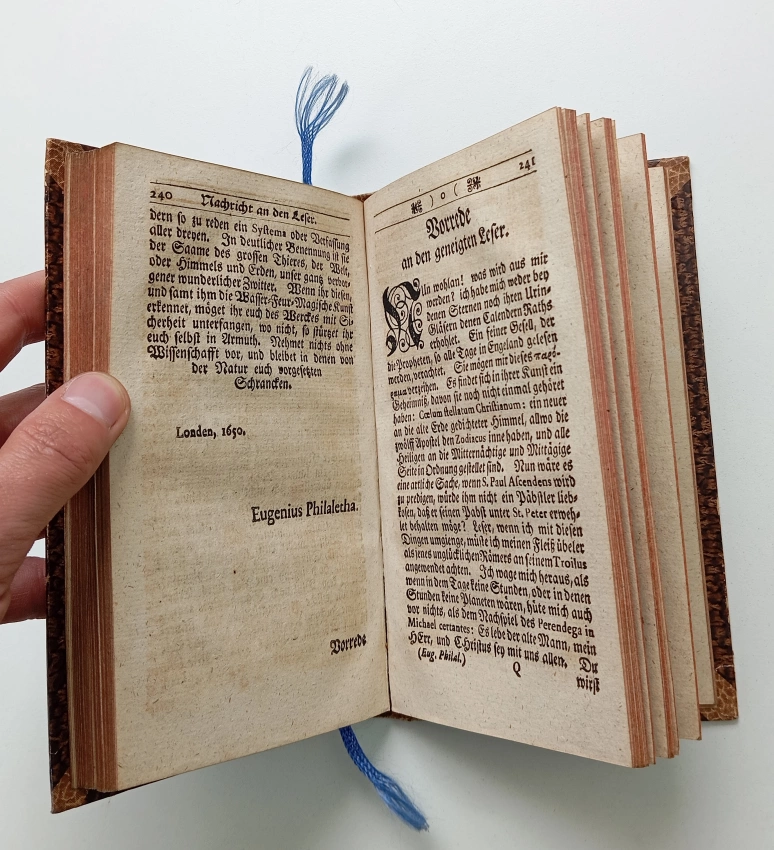 240 Nachricht an den Leser.
dern so zu reden ein Systema oder Verfassung
aller dreyen. In deutlicher Benennung ist sie
der Saame des grossen Thieres, der Welt,
oder Himmels und Erden, unser gantz verbor-
gener wunderlicher Zwitter. Wenn ihr diesen,
und samt ihm die Wasser-Feur-Magische Kunst
erkennet, möget ihr euch des Werckes mit Si-
cherheit unterfangen, wo nicht, so stürtzet ihr
euch selbst in Armuth. Nehmet nichts ohne
Wissenschafft vor, und bleibet in denen von
der Natur euch vorgesetzten
Schrancken.
Londen, 1650.
Eugenius Philaletha.
Vorrede
) o ( 241
Vorrede
an den geneigten Leser.
Nun wohlan! was wird aus mir
werden? ich habe mich weder bey
denen Sternen noch ihren Urin-
Gläsern denen Calendern Raths
erhohlet. Ein feiner Gesell, der
die Propheten, so alle Tage in Engeland gelesen
werden, verachtet. Sie mögen mir dieses
verzeihen. Es findet sich in ihrer Kunst ein
Geheimniß, davon sie noch nicht einmal gehöret
haben: Cœlum stellatum Christianum: ein neuer
an die alte Erde gedichteter Himmel, allwo die
zwölff Apostel den Zodiacus innehaben, und alle
Heiligen an die Mitternächtige und Mittägige
Seite in Ordnung gestellet sind. Nun wäre es
eine artliche Sache, wenn S. Paul Ascendens wird
zu predigen, würde ihm nicht ein Päbstler lieb-
kosen, daß er seinen Pabst unter St. Peter erweh-
let behalten möge? Leser, wenn ich mit diesen
Dingen umgienge, müste ich meinen Fleiß übeler
als jenes unglücklichen Römers an seinem Troilus
angewendet achten. Ich wage mich heraus, als
wenn in dem Tage keine Stunden, oder in denen
Stunden keine Planeten wären, hüte mich auch
vor nichts, als dem Nachspiel des Perendega in
Michael certantes: Es lebe der alte Mann, mein
HErr, und CHristus sey mit uns allen. Du
(Eug. Philal.) Q wirst